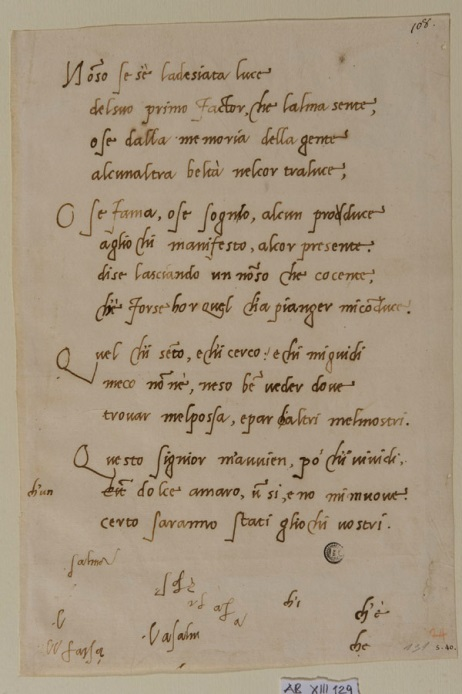 108.
Nō so se s'è la desiata luce
del suo primo factor, che l'alma sente,
o se dalla memoria della gente
alcun'altra beltà nel cor traluce;
O se fama, o se sognio, alcun prodduce
agli ochi manifesto, al cor presente.
di se lasciando un nō so che cocente,
che forse hor quel ch'a pianger mi cōduce.
Quel ch'i sēto, e ch'i cerco: e chi mi guidi
meco nō n'è, ne so bē veder dove
trovar mel possa, e par ch'altri mel mostri.
Questo signior m'avvien, po' ch'i vi vidi,
ch'un dolce amaro, ū si, e no mi muove:
certo saranno stati gli ochi vostri.
salme
ch'i
ch'è
che
AB XIII 129